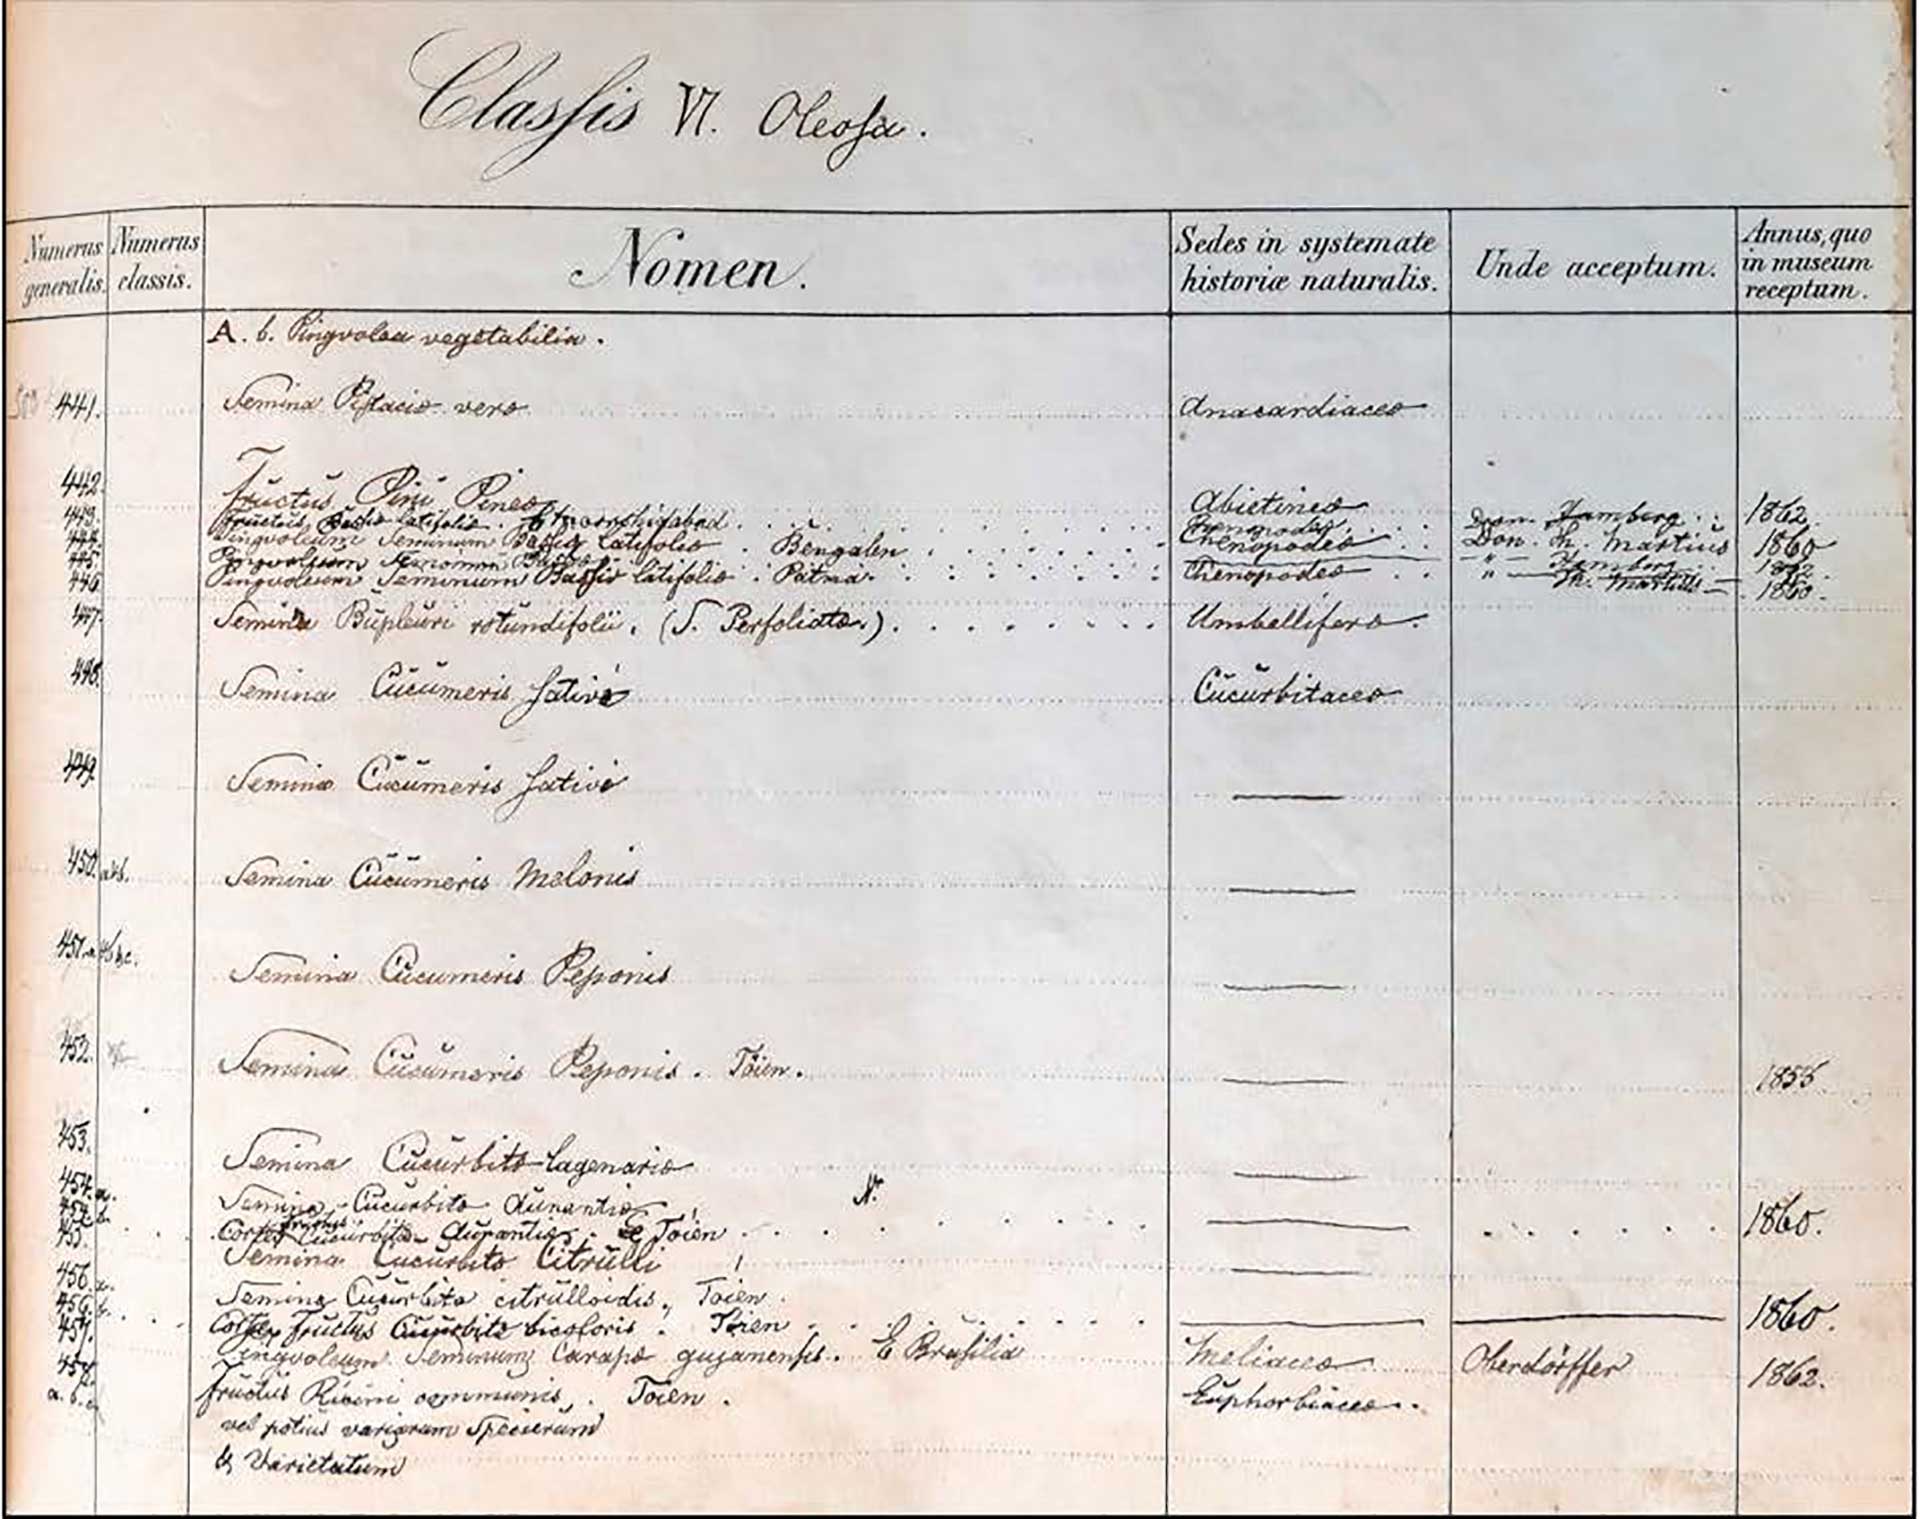 Classis VI. Oleosa.
Numerus generalis.
Numerus classis.
Nomen.
Sedes in systemate historiæ naturalis.
Unde acceptum.
Annus, quo in museum receptum.
A. b. Pingvolea vegetabilia.
441. Semina Pistaciæ veræ Anacardiaceæ
442. Fructus Pini Pineæ Abietineæ 1862
443. Fructus Bassiæ latifoliæ.
444. Pingvoleum Seminum Bassiæ latifoliæ. Bengalen Chenopodeæ Don. Th. Martius 1860
445. Pingvoleum
446. Pingvoleum Seminum Bassiæ latifoliæ. Patna. Chenopodeæ " Th. Martius 1860.
447. Semina Bupleuri rotundifolii. (S. Perfoliatæ.) Umbelliferæ.
448. Semina Cucumeris sativi Cucurbitaceæ
449. Semina Cucumeris sativi —
450. a & b. Semina Cucumeris Melonis —
451. Semina Cucumeris Peponis —
452. Semina Cucumeris Peponis. Töien. — 1855
453. Semina Cucurbitæ lagenariæ —
454. a. Semina Cucurbitæ Aurantiæ
454. b. Cortex fructus Cucurbitæ Aurantiæ. E Töien — 1860.
455. Semina Cucurbitæ Citrulli —
456. a. Semina Cucurbitæ citrulloidis, Töien.
456. b. Cortex fructus Cucurbitæ bicoloris. Töien — — 1860.
457. Pingvoleum Seminum Carapæ gujanensis. E Brasilia Meliaceæ Oberdörffer 1862.
458. a. b. c. Fructus Ricini communis. Töien. Euphorbiaceæ.
vel potius variarum Specierum
& Varietatum